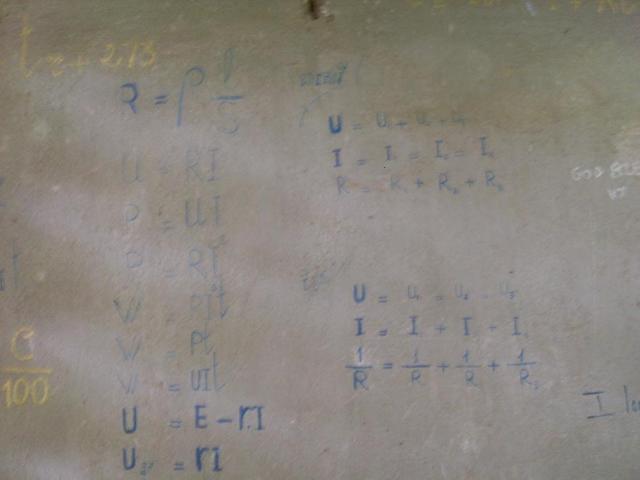 + 273
R = ρ l/S
U = RI
P = UI
P = RI²
W = RI²t
W = Pt
W = UIt
U = E - rI
U = rI
U = U₁ + U₂ + U₃
I = I₁ = I₂ = I₃
R = R₁ + R₂ + R₃
U = U₁ = U₂ = U₃
I = I + I + I
1/R = 1/R + 1/R + 1/R₃
C/100
GOD BLESS
I